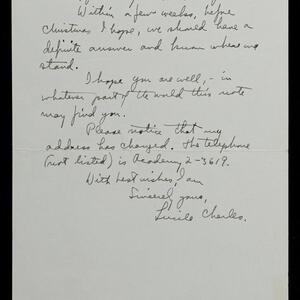 Within a few weeks, before
Christmas I hope, we should have a
definite answer and know where we
stand.
I hope you are well, - in
whatever part of the world this note
may find you.
Please notice that my
address has changed. The telephone
(not listed) is Academy 2-3619.
With best wishes, I am
Sincerely yours,
Lucile Charles.